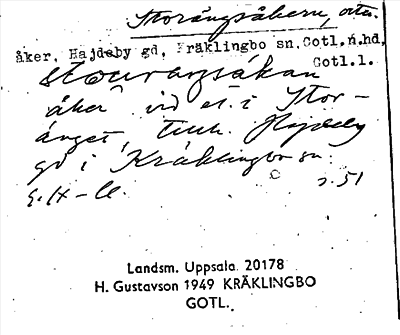 Storängsåkern, ortn.
åker, Hajdeby gd, Kräklingbo sn, Gotl.n.hd,
Gotl.l.
åker vid et. i Stor-
änget, till h. Hajdeby
gd i Kräklingbo sn.
s. 51
Landsm. Uppsala 20178
H. Gustavson 1949 KRÄKLINGBO
GOTL.